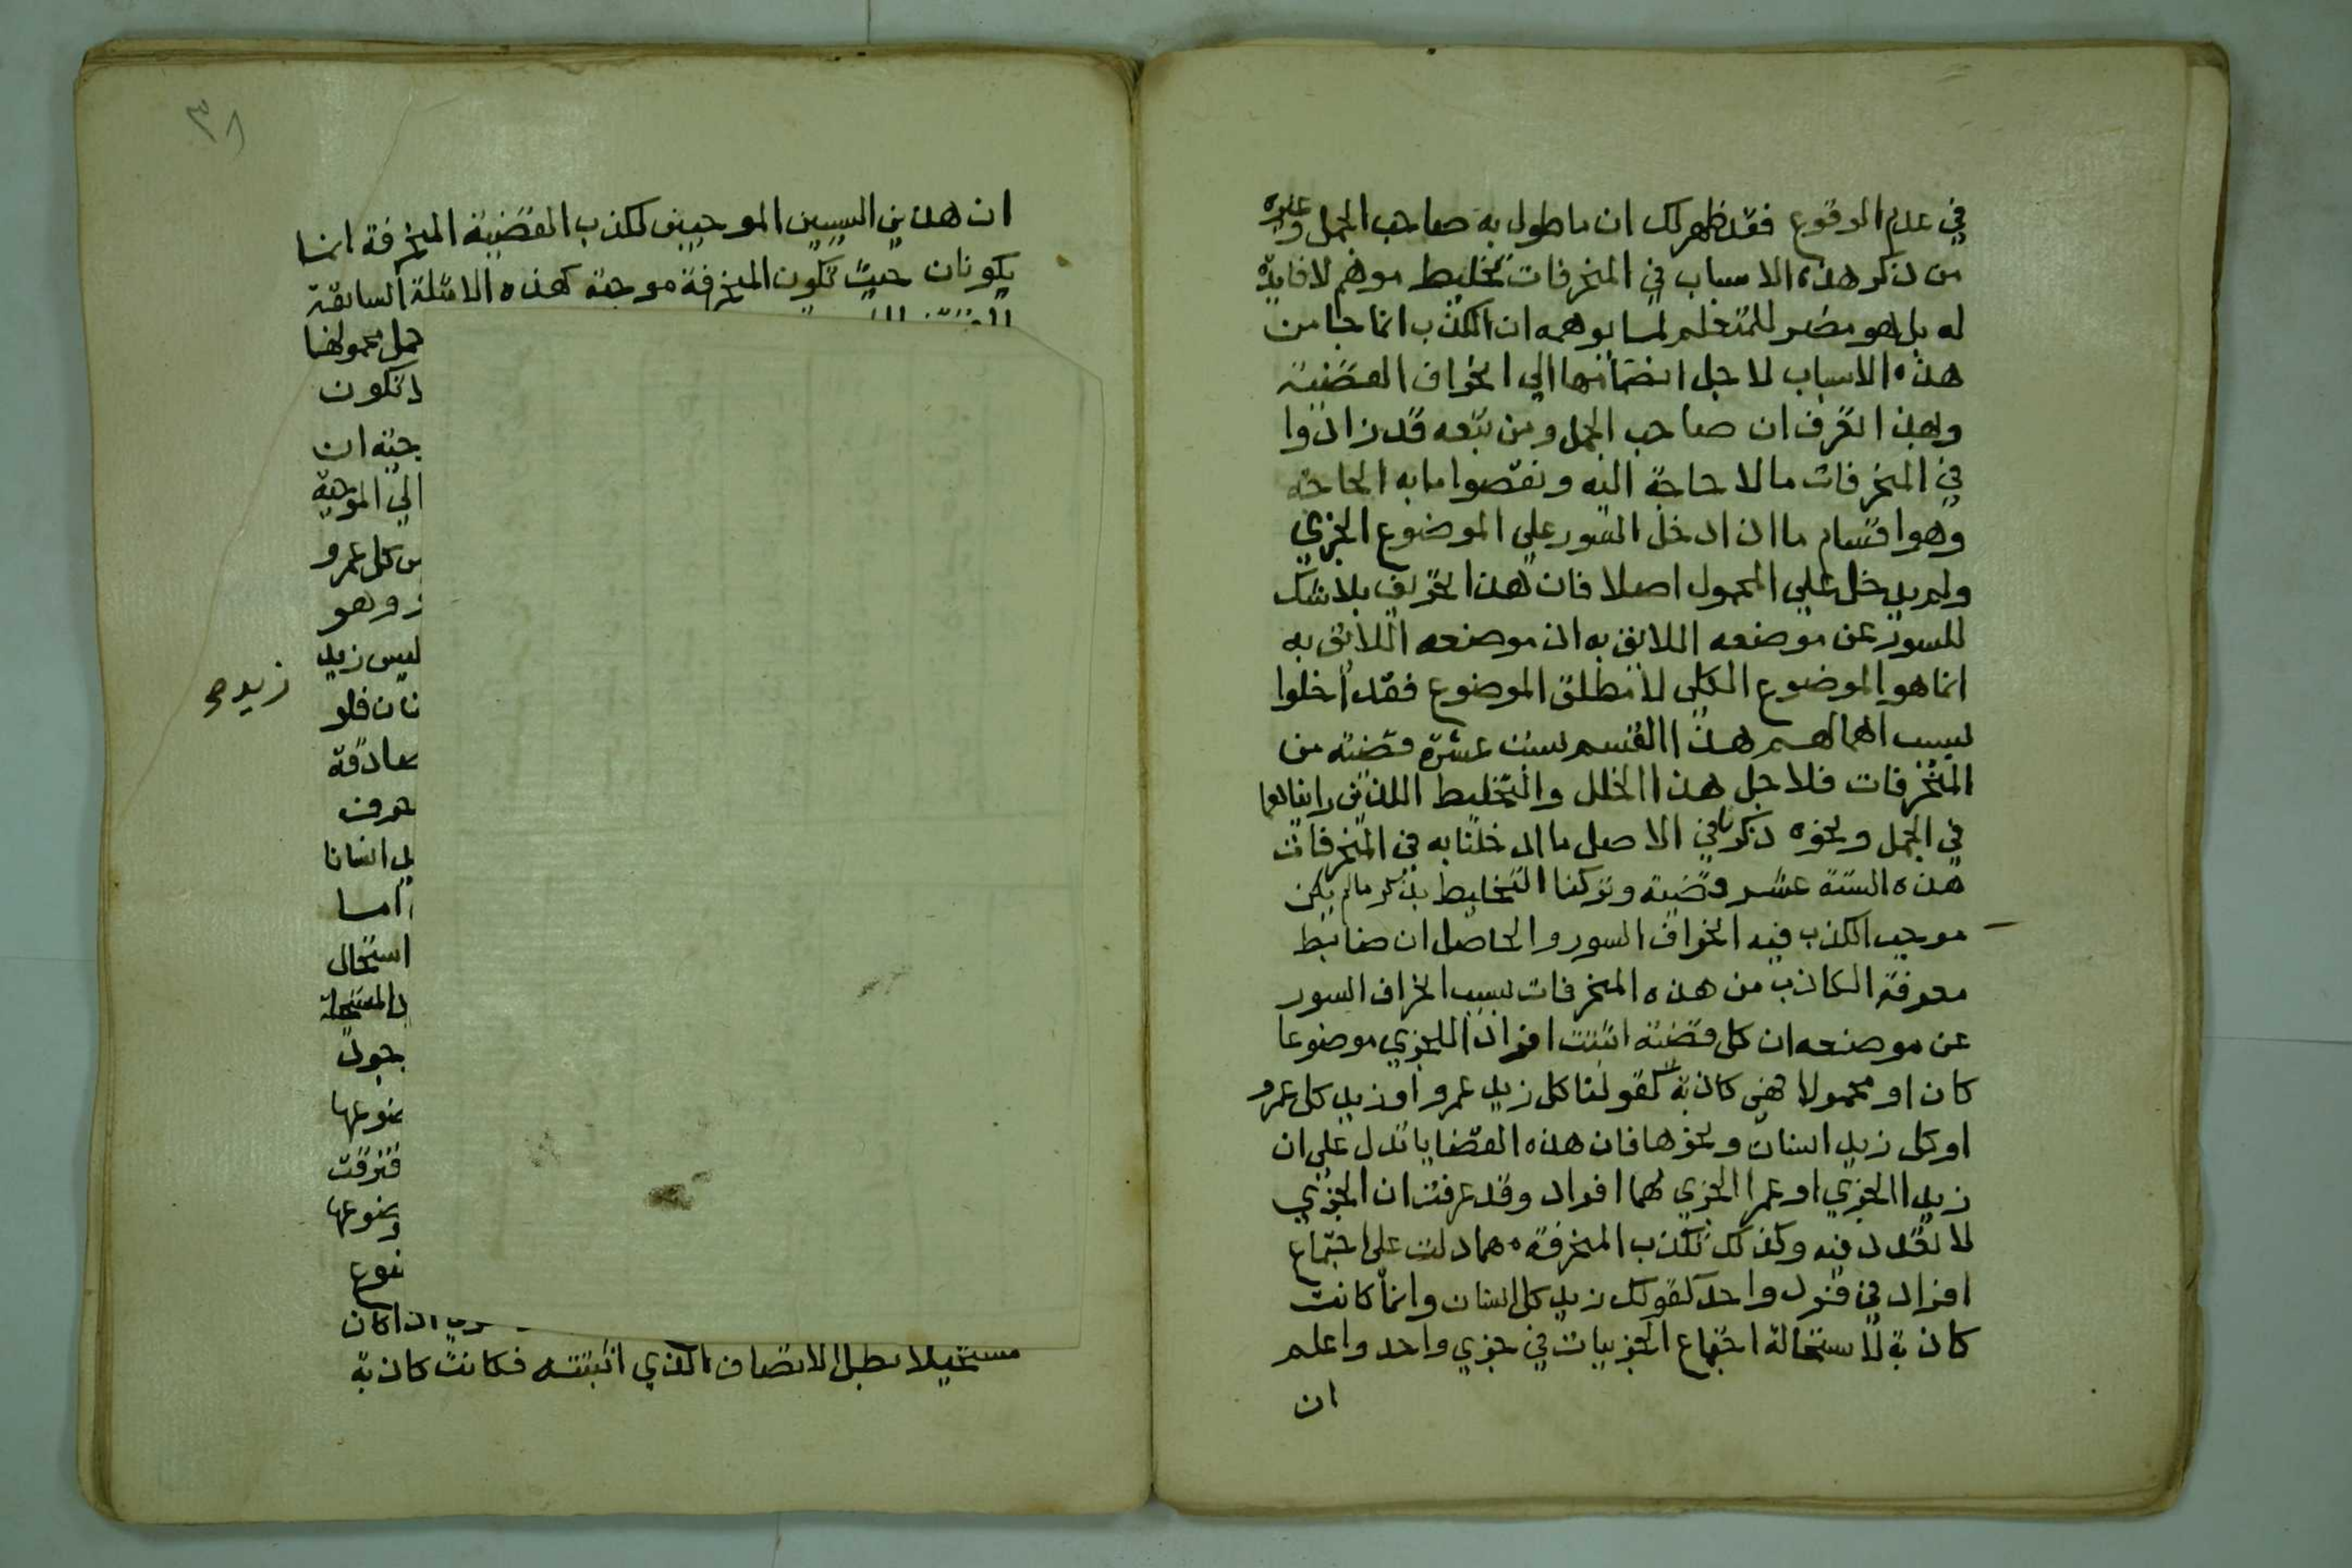 في عدم الوقوع فقد ظهر لك ان ما طول به صاحب الجمل وغيره
من ذكر هذه الاسباب في المنحرفات تخليط موهم لا فايدة
له بل هو مضر للمتعلم لما يوهمه ان الكذب انما جا من
هذه الاسباب لا جل انضمامها الي انحراف القضية
وبهذا تعرف ان صاحب الجمل ومن تبعه قد زادوا
في المنحرفات ما لا حاجة اليه ونقصوا ما به الحاجة
وهو اقسام ما اذا دخل السور علي الموضوع الجزي
ولم يدخل علي المحمول اصلا فان هذا تحريف بلا شك
للسور عن موضعه اللايق به اذ موضعه اللايق به
انما هو الموضوع الكلي لا مطلق الموضوع فقد اخلوا
بسبب اهمالهم هذا القسم بست عشرة قضية من
المنحرفات فلا جل هذا الخلل والتخليط اللذين رايناهما
في الجمل ونحوه ذكرنا في الاصل ما ادخلنا به في المنحرفات
هذه الستة عشر قضية وتركنا التخليط بذكر ما لم يكن
موجب الكذب فيه انحراف السور والحاصل ان ضابط
معرفة الكاذب من هذه المنحرفات بسبب انحراف السور
عن موضعه ان كل قضية اثبتت افرادا للجزي موضوعا
كان او محمولا فهي كاذبة كقولنا كل زيد عمرو او زيد كل عمرو
او كل زيد انسان ونحوها فان هذه القضايا تدل علي ان
زيدا الجزي او عمرا الجزي لهما افراد وقد عرفت ان الجزي
لا تعدد فيه وكذلك تكذب المنحرفة مهما دلت علي اجتماع
افراد في فرد واحد كقولك زيد كل انسان وانما كانت
كاذبة لاستحالة اجتماع الجزييات في جزي واحد واعلم
ان
٣٨
ان هذين السببين الموجبين لكذب القضية المنحرفة انما
يكونان حيث تكون المنحرفة موجبة كهذه الامثلة السابقة
حمل محمولها
تكون
جبة ان
الي الموجبة
س كل عمرو
وهو
ليس زيد
زيد صح
فلو
صادقة
حرف
انسانا
اما
استحال
المستحيلة
جود
ضوعها
فترقت
ضوعها
ضوع
اذا كان
مستحيلا بطل الاتصاف الذي اثبتته فكانت كاذبة